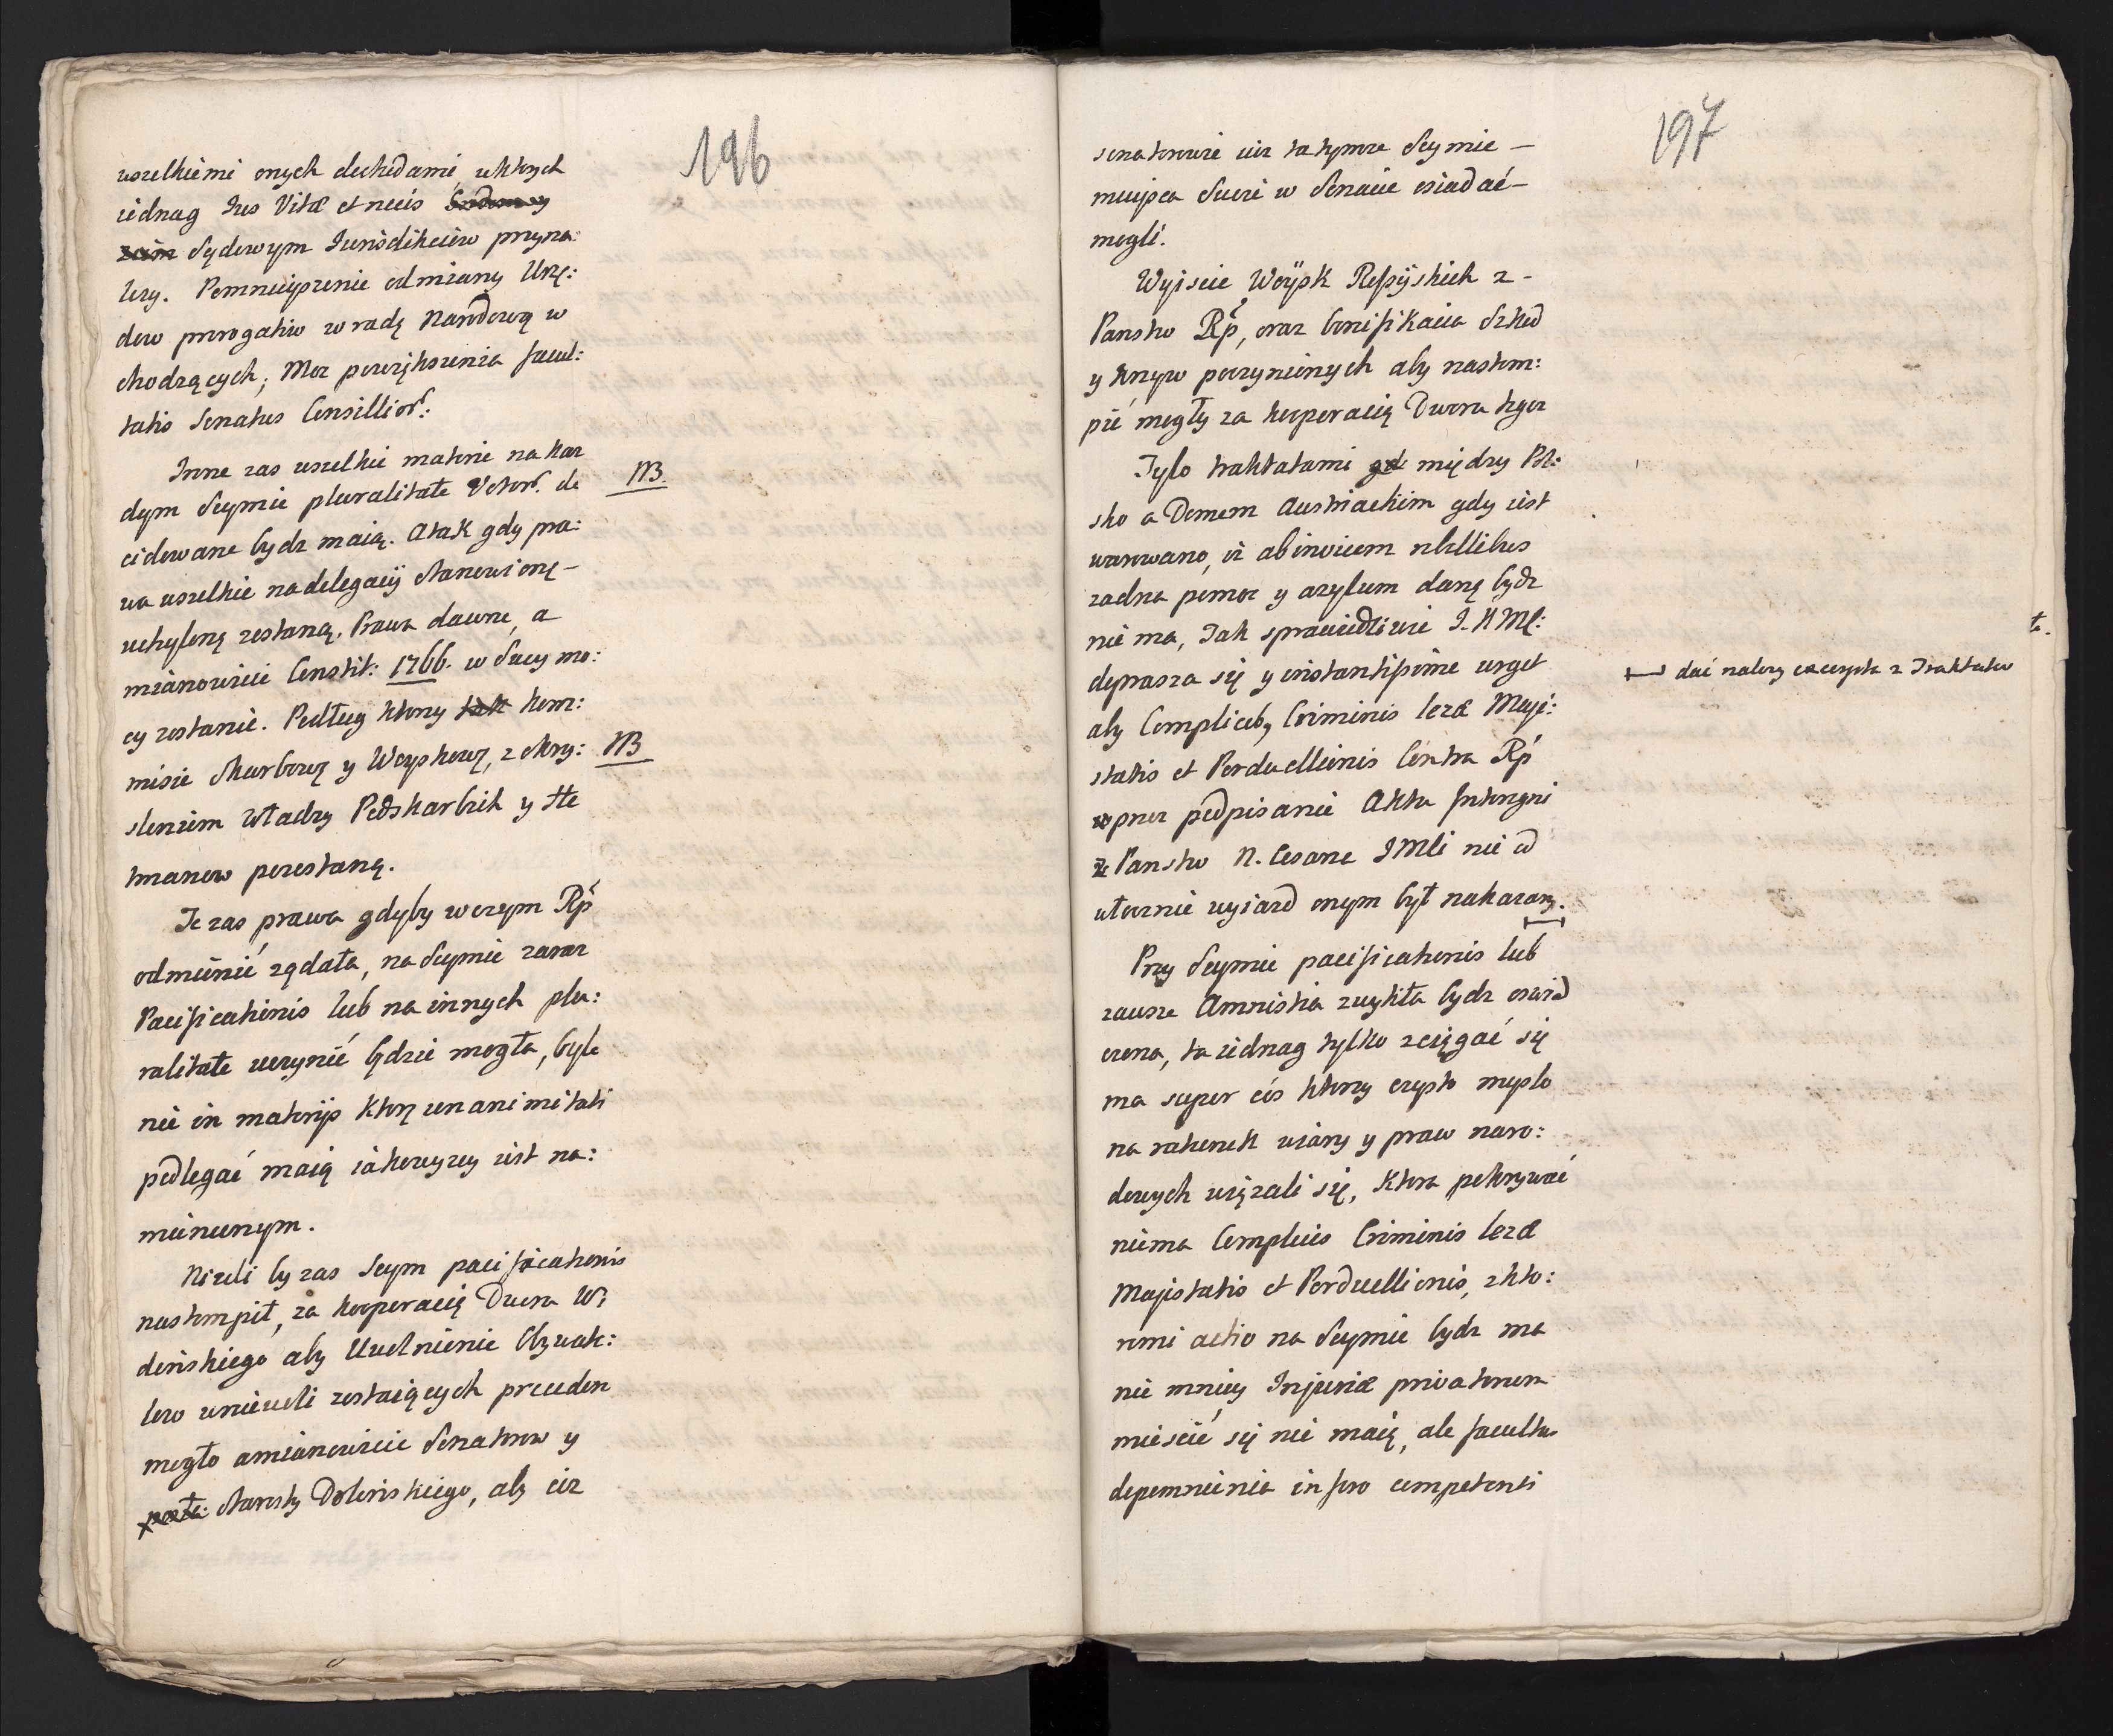 196
wszelkiemi onych dochodami, w ktorych
iednag Jus Vitæ et necis
Sądowym Jurisdikciow przyna:
leży. Pomnieyszenie odmiany Urzę:
dow prerogatiw w radę Narodową w
chodzących; Moz powiększenia facul:
tatis Senatus Consilliorũ:
Inne zas wszelkie materie na kaz
dym Seymie pluralitate Votorũ. de
NB.
cidowane bydz maią. A tak gdy pra:
wa wszelkie na delegacij stanowioną –
uchyloną zostaną. Prawa dawne, a
mianowicie Constit: 1766. w swey mo:
cy zostanie. Podług ktory tak kom:
misie skarbową y Woyskową, z okry:
NB
sleniem Władzy Podskarbich y He
tmanow pozostaną.
Te zas prawa gdyby w czym Rp
odmienić ządała, na Seymie zaraz
Pacificationis lub na innych plu:
ralitate uczynić będzie mogła, byle
nie in materijs ktorę unanimitati
podlegać maią iako wyzey iest na:
mienionym.
Nizeli by zas Seym pacificationis
nastompił, za kooperacią Dwora Wi
denskiego aby Uwolnienie Obywate:
low w niewoli zostaiących precedere
mogło a mianowicie Senatorow y
posła: Starosty Dolinskiego, aby ciz
197
senatorowie iuz na tymze Seymie –
mieysca swoie w Senacie osiadać –
mogli.
Wyiscie Woysk Rossyiskich z –
Panstw Rp, oraz bonifikacia szkod
y krzyw poczynionych aby nastom:
pić mogły za kooperacią Dwora tegoz
Tylo traktatami gd między Pol:
sko a Domem Austriackim gdy iest
warowano, iz ab invicem rebellibus
zadna pomoc y azylum daną bydz
nie ma, Jak sprawiedliwie J. K Mę:
doprasza się y instantissime urget
aby Complicib, Criminis lezæ Maje:
statis et Perduellionis Contra Rp
przez podpisanie Aktu
ze Panstw N. Cesarze JMći nie od
włocznie wyiazd onym był nakazany.
dać nalezy excerpta z Traktatu
Przy Seymie pacificationis lub
zawsze Amnistia zwykła bydz oswiad
czona, ta iednag tylko sciągać się
ma super eis ktorzy czysto myslo
na ratunek wiary y praw naro:
dowych wiązali się, ktora pokrywać
niema Complices Criminis lezæ
Majestatis et Perduellionis, z kto:
remi actio na Seymie bydz ma
nie mniey Injuriæ privatorum
miescić się nie maią, ale facultas
dopomnienia in foro competenti